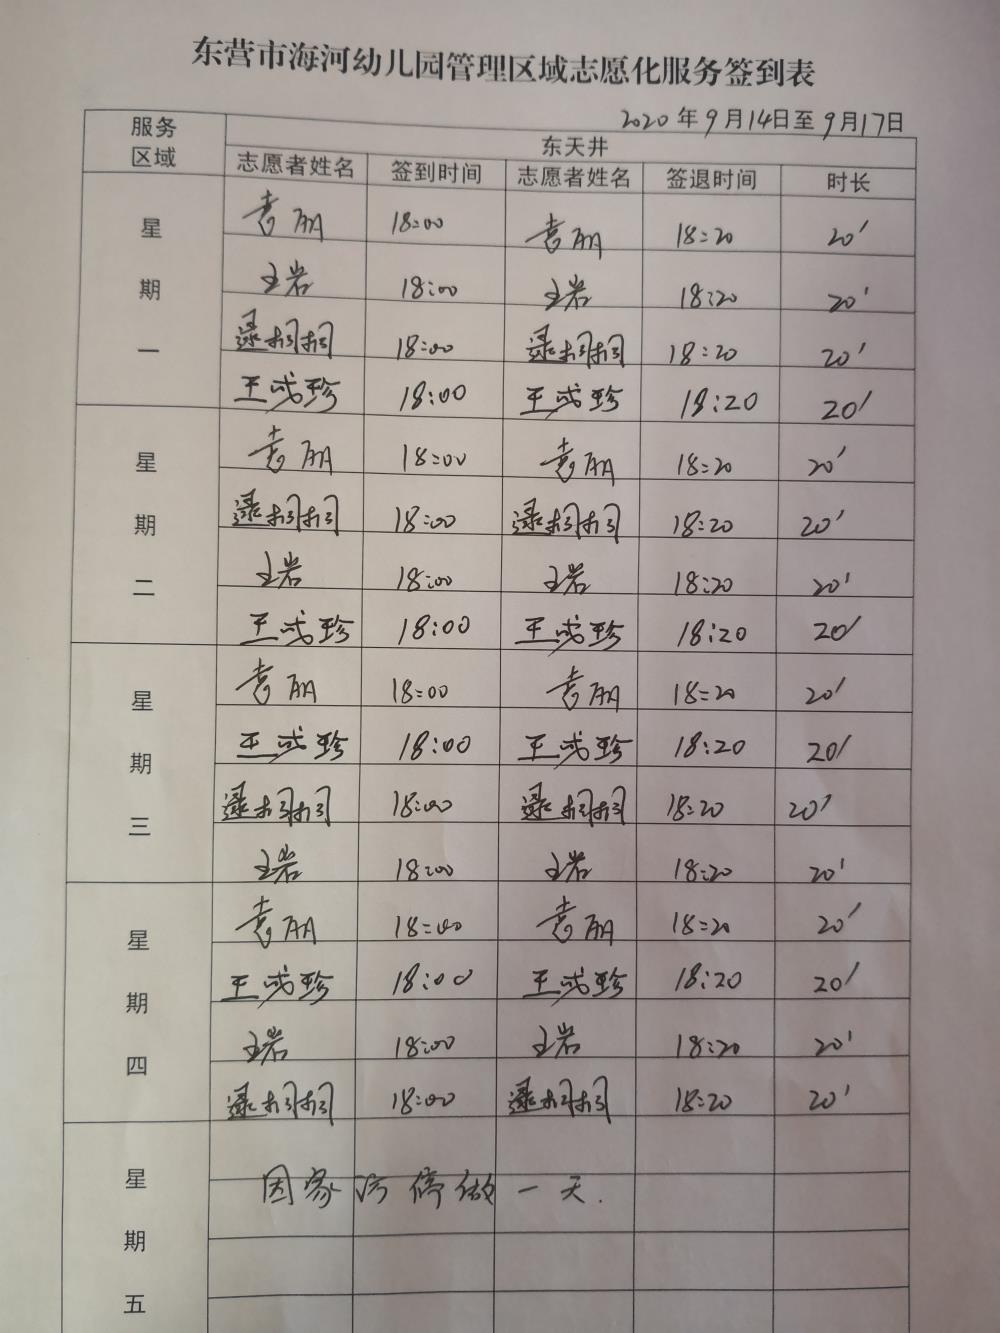 东营市海河幼儿园管理区域志愿化服务签到表
2020年9月14日至9月17日
服务区域 东天井
志愿者姓名 签到时间 志愿者姓名 签退时间 时长
星期一
袁丽 18:00 袁丽 18:20 20'
王岩 18:00 王岩 18:20 20'
逯栩栩 18:00 逯栩栩 18:20 20'
王彧珍 18:00 王彧珍 18:20 20'
星期二
袁丽 18:00 袁丽 18:20 20'
逯栩栩 18:00 逯栩栩 18:20 20'
王岩 18:00 王岩 18:20 20'
王彧珍 18:00 王彧珍 18:20 20'
星期三
袁丽 18:00 袁丽 18:20 20'
王彧珍 18:00 王彧珍 18:20 20'
逯栩栩 18:00 逯栩栩 18:20 20'
王岩 18:00 王岩 18:20 20'
星期四
袁丽 18:00 袁丽 18:20 20'
王彧珍 18:00 王彧珍 18:20 20'
王岩 18:00 王岩 18:20 20'
逯栩栩 18:00 逯栩栩 18:20 20'
星期五
因家访停做一天.